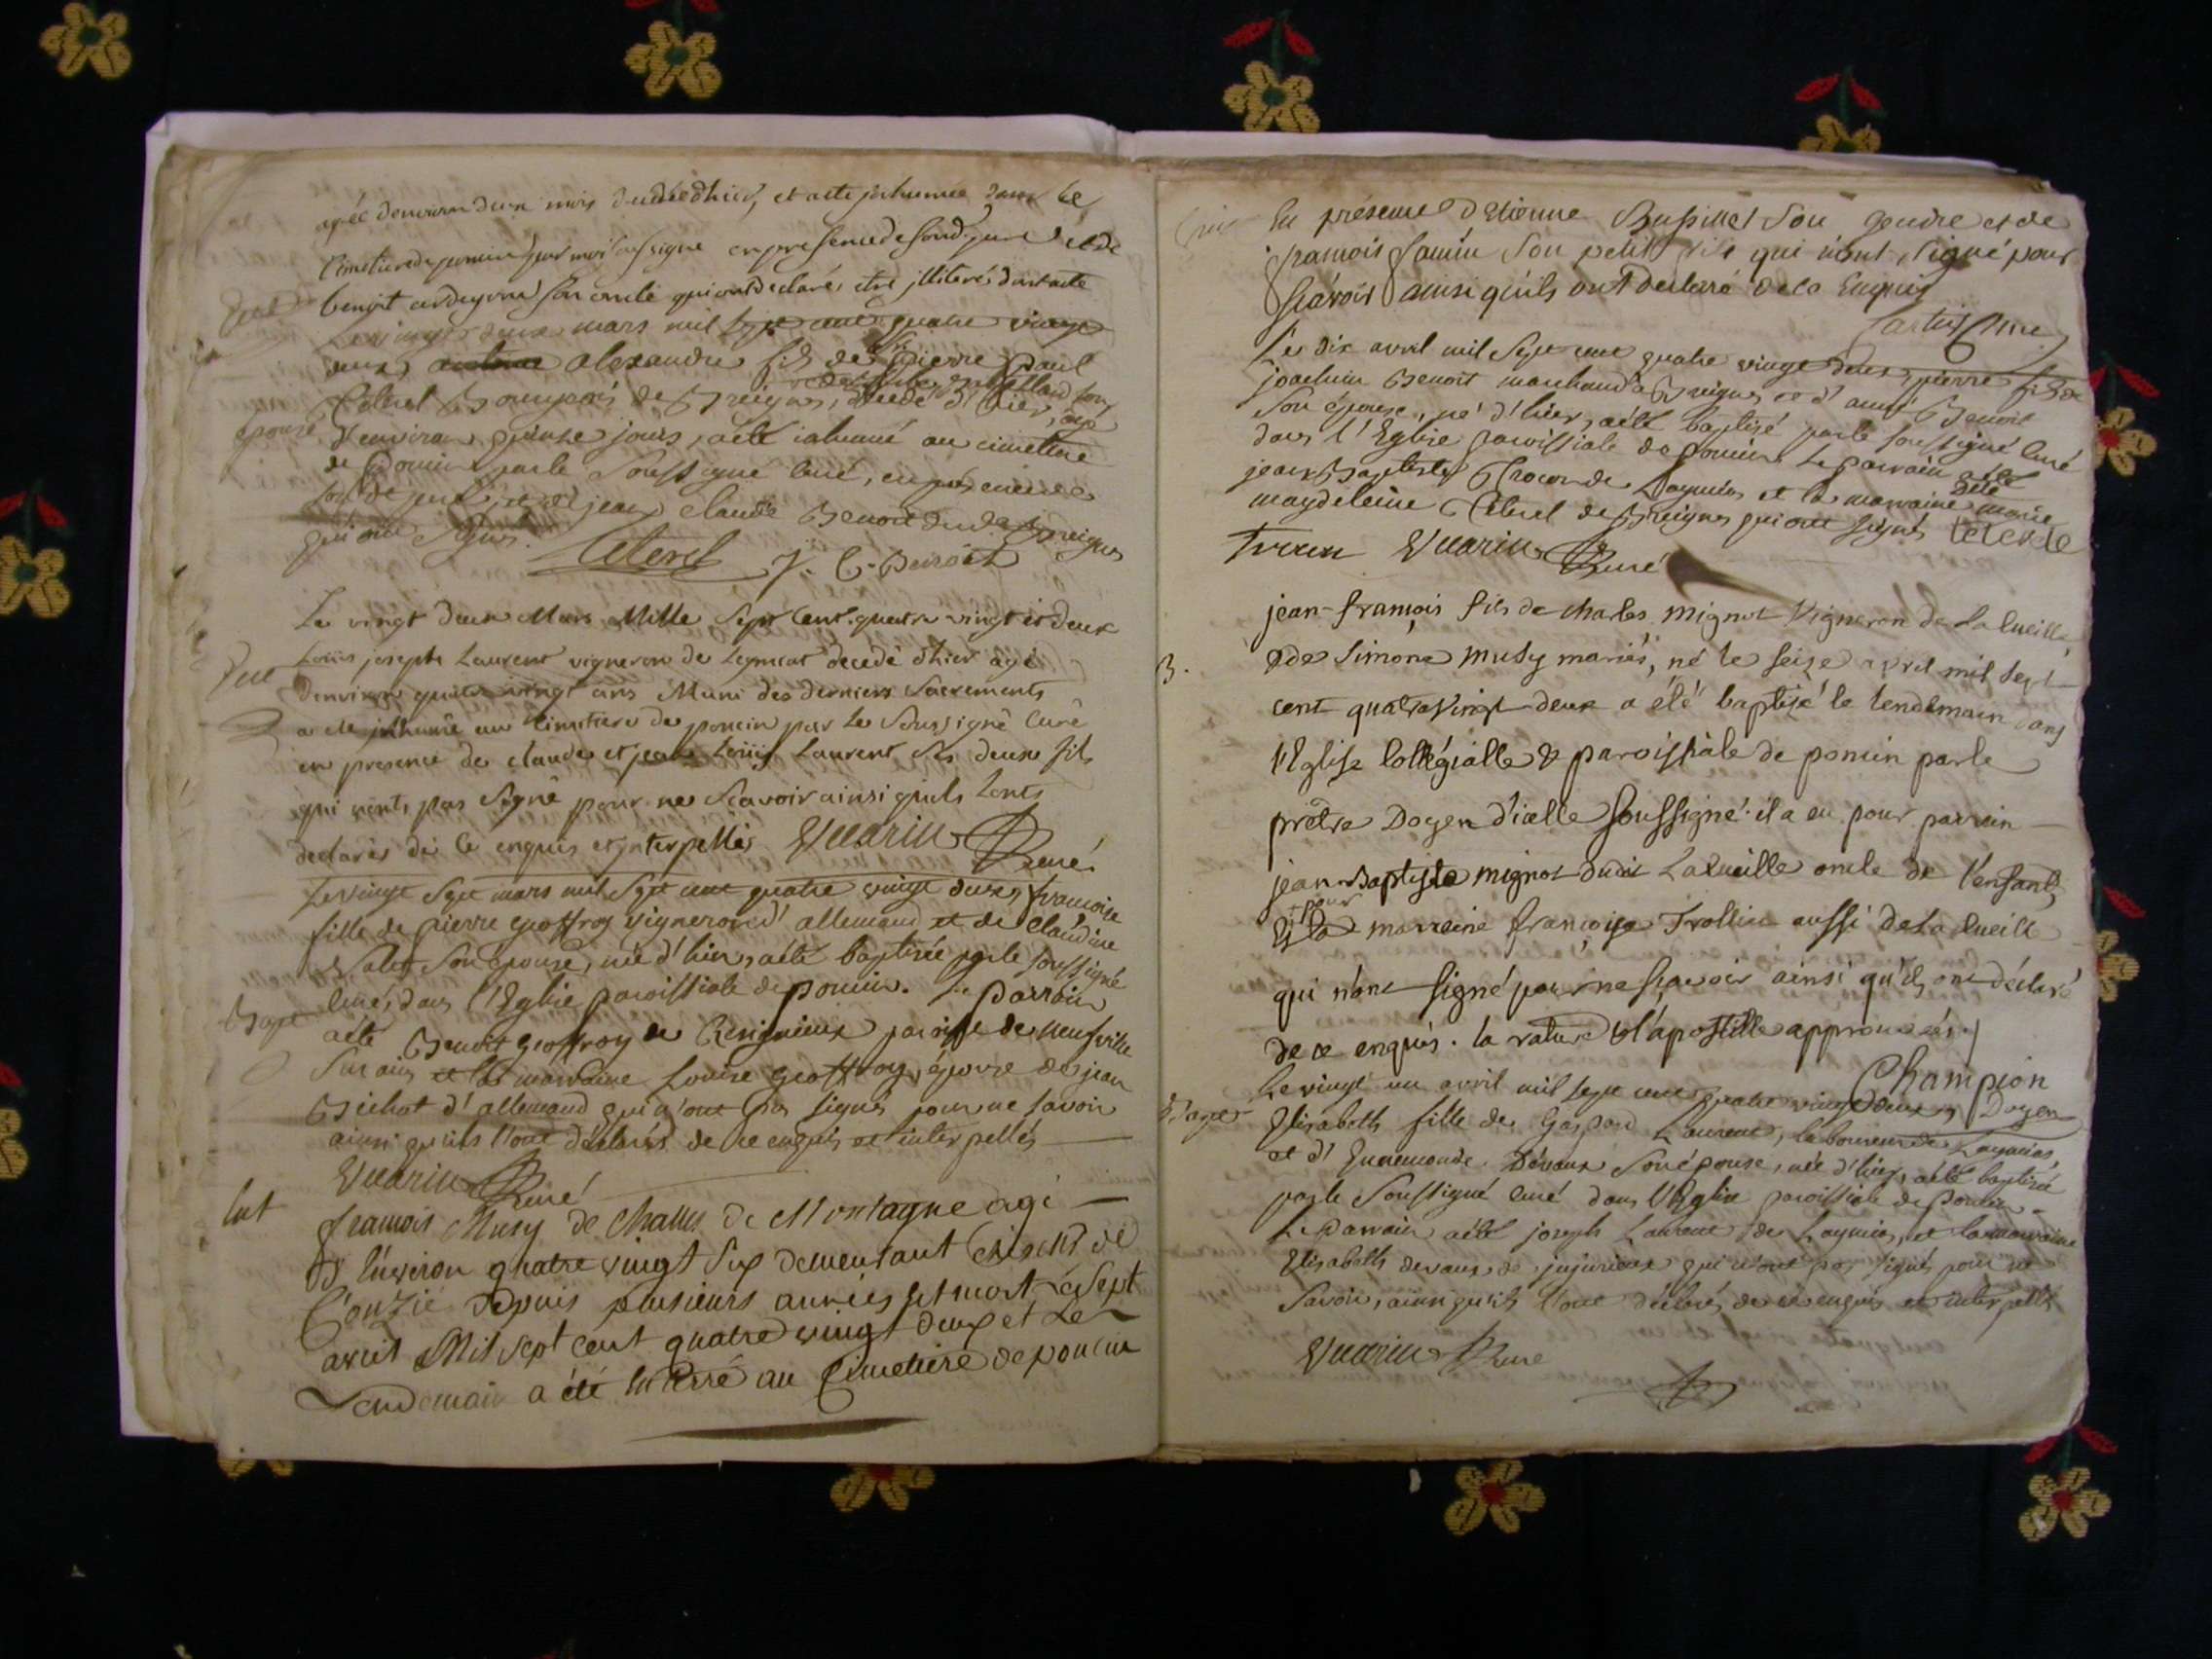 agée denviron deux mois decedée d'hier, et a eté inhumée dans le
Cimetiere de poncin par moi soussigné en presence de sond. pere et de
benoit son oncle qui ont declarés etre illiterés dont acte
Le vingt deux mars mil sept cent quatre vingt
deux, alexandre fils de pierre paul
Bourgeois de Breignes, decedé d'hier, agé
épouse
d'environ quinze jours, a été inhumé au cimetiere
de Poncin par le soussigné curé, en présence de
son dt pere, et de jean claude Benoit dudt Breignes
qui ont signés.
J. C. Benoit
Le vingt deux Mars Mille Sept Cent quatre vingt et deux
Louis joseph Laurent vigneron de Leymiat decedé d'hier agé
denviron quatre vingt ans Muni des derniers Sacrements
a eté inhumé au cimetiere de poncin par le Soussigné Curé
en presence de claude et jean Louis Laurent ses deux fils
qui n'ont pas signé pour ne Scavoir ainsi quils lonts
declarés de ce enquis et interpellés Vuarin Curé
Le vingt sept mars mil sept cent quatre vingt deux, francoise
fille de pierre geoffroy vigneron d'allemand et de claudine
son épouse, née d'hier, a été baptisée par le soussigné
Bapt curé, dans l'Eglise paroissiale de poncin. Le parrain
a été Benoit geoffroy de Resignieux paroisse de neufville
sur ain et la marraine Louise geoffroy, épouse de jean
Bichat d'allemand qui n'ont pas signés pour ne savoir
ainsi qu'ils l'ont déclarés de ce enquis et interpellés
Vuarin Curé
francois Musy de Challes de Montagne agé
d'Environ quatre vingt six demeurant
depuis plusieurs années est mort Le Sept
avril Mil sept cent quatre vingt deux et Le
Lendemain a été enterré au Cimetiere de poncin
En présence d'Etienne Bussillet son gendre et de
francois son petit fils qui n'ont signé pour
scavoir ainsi qu'ils ont declaré de ce Enquis
Le dix avril mil sept cent quatre vingt deux, pierre fils de
joachim Benoit marchand a Breignes et d'
son épouse, né d'hier, a été baptisé par le soussigné curé
dans l'Eglise paroissiale de poncin. Le parrain a été
jean Baptiste de Leymiat et la marraine a été marie
magdeleine de Breignes qui ont signés
Vuarin Curé
jean-francois fils de charles mignot Vigneron de la Cueille
B. & de Simone Musy mariés, né le seize avril mil sept
cent quatre Vingt deux a été baptisé le lendemain dans
l'Eglise Collégialle & paroissiale de poncin par le
prêtre Doyen d'icelle soussigné. il a eu pour parrain
jean-Baptiste mignot dudit La Cueille oncle de l'enfant,
pour
Et la marreine francoise Trollin aussi de La Cueille
qui n'ont signé pour ne sçavoir ainsi qu'ils ont déclaré
de ce enquis. la rature & l'apostille approuvées.
Champion
Doyen
Le vingt un avril mil sept cent quatre vingt deux,
Bapt Elisabeth fille de Gaspard Laurent, laboureur de Leymiat,
et d'Ennemonde Devaux son épouse, née d'hier, a été baptisée
par le soussigné curé dans l'Eglise paroissiale de Poncin.
Le parrain a été joseph Laurent de Leymiat, et la marraine
Elisabeth devaux de jujurieux qui n'ont pas signés pour ne
savoir, ainsi qu'ils l'ont déclarés de ce enquis et interpellés
Vuarin Curé